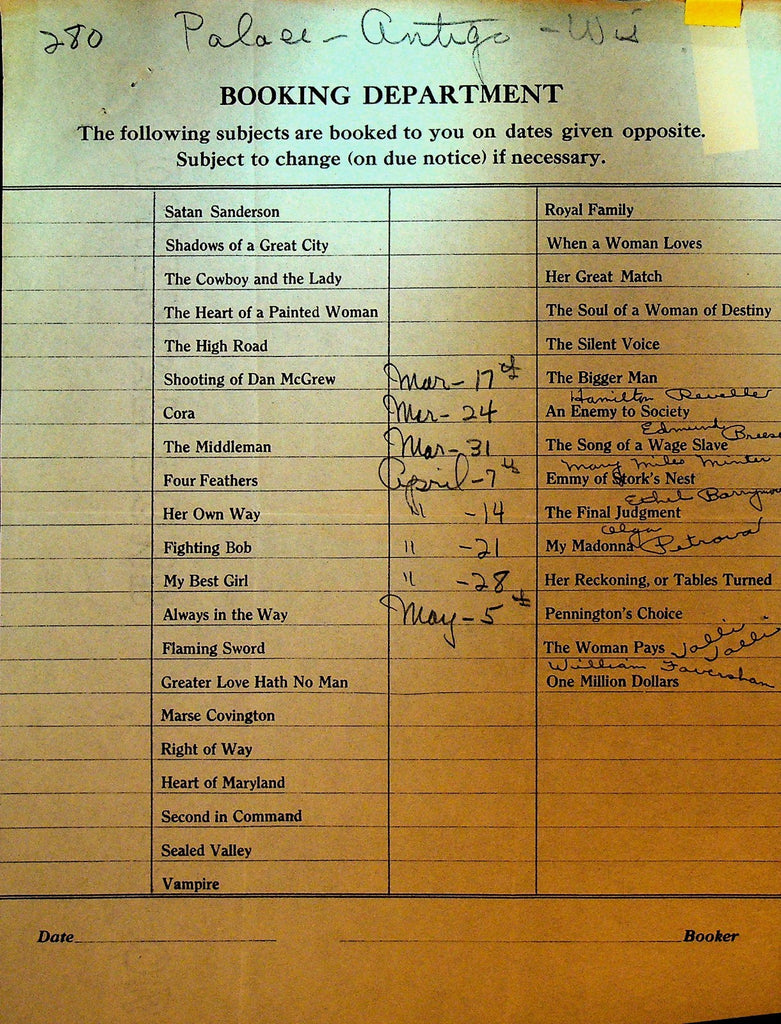 280 Palace - Antigo - Wis
BOOKING DEPARTMENT
The following subjects are booked to you on dates given opposite.
Subject to change (on due notice) if necessary.
Satan Sanderson Royal Family
Shadows of a Great City When a Woman Loves
The Cowboy and the Lady Her Great Match
The Heart of a Painted Woman The Soul of a Woman of Destiny
The High Road The Silent Voice
Shooting of Dan McGrew Mar - 17th The Bigger Man
Hamilton Revelle
Cora Mar - 24 An Enemy to Society
Edmund Breese
The Middleman Mar - 31 The Song of a Wage Slave
Mary Miles Minter
Four Feathers April - 7th Emmy of Stork's Nest
Ethel Barrymore
Her Own Way " - 14 The Final Judgment
Olga
Fighting Bob " - 21 My Madonna Petrova
My Best Girl " - 28 Her Reckoning, or Tables Turned
Always in the Way May - 5th Pennington's Choice
Flaming Sword The Woman Pays
William Faversham
Greater Love Hath No Man One Million Dollars
Marse Covington
Right of Way
Heart of Maryland
Second in Command
Sealed Valley
Vampire
Date Booker